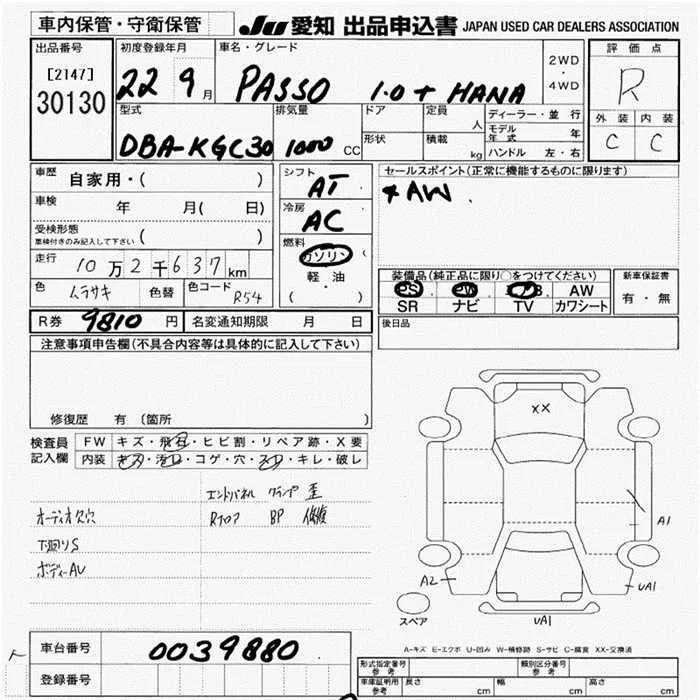 車内保管・守衛保管 JU 愛知 出品申込書 JAPAN USED CAR DEALERS ASSOCIATION
出品番号 初度登録年月 車名・グレード 2WD ・ 4WD 評価点
[2147] 30130 22 9月 PASSO 1.0 + HANA R
型式 排気量 ドア 定員 人 ディーラー・並行 外装 内装
DBA-KGC30 1000 CC 形状 積載 kg モデル年式 年 C C
ハンドル 左・右
車歴 自家用・( ) シフト AT セールスポイント(正常に機能するものに限ります)
車検 年 月( 日) 冷房 AC *AW.
受検形態 車検付きのみ記入して下さい ( ) 燃料 ガソリン
走行 10万2千637km 軽油 装備品(純正品に限り○をつけてください) 新車保証書
色 ムラサキ 色替 色コード R54 ( ・ ) PS PW AW 有・無
SR ナビ TV カワシート
R券 9810 円 名変通知期限 月 日 後日品
注意事項申告欄(不具合内容等は具体的に記入して下さい)
修復歴 有 (箇所 )
XX
検査員 FW キズ・飛石・ヒビ割・リペア跡・X要
記入欄 内装 キズ・汚レ・コゲ・穴・スレ・キレ・破レ
エンドパネル クランプ 歪
オーディオ欠穴 Rフロア BP 修復
A1
下廻りS
ボディーAU
A2 UA1
スペア UA1
A-キズ E-エクボ U-凹み W-補修跡 S-サビ C-腐食 XX-交換済
車台番号 0039880
登録番号
形式指定番号 参考 類別区分番号 参考
車庫証明用 参考 長さ cm 幅 cm 高さ cm